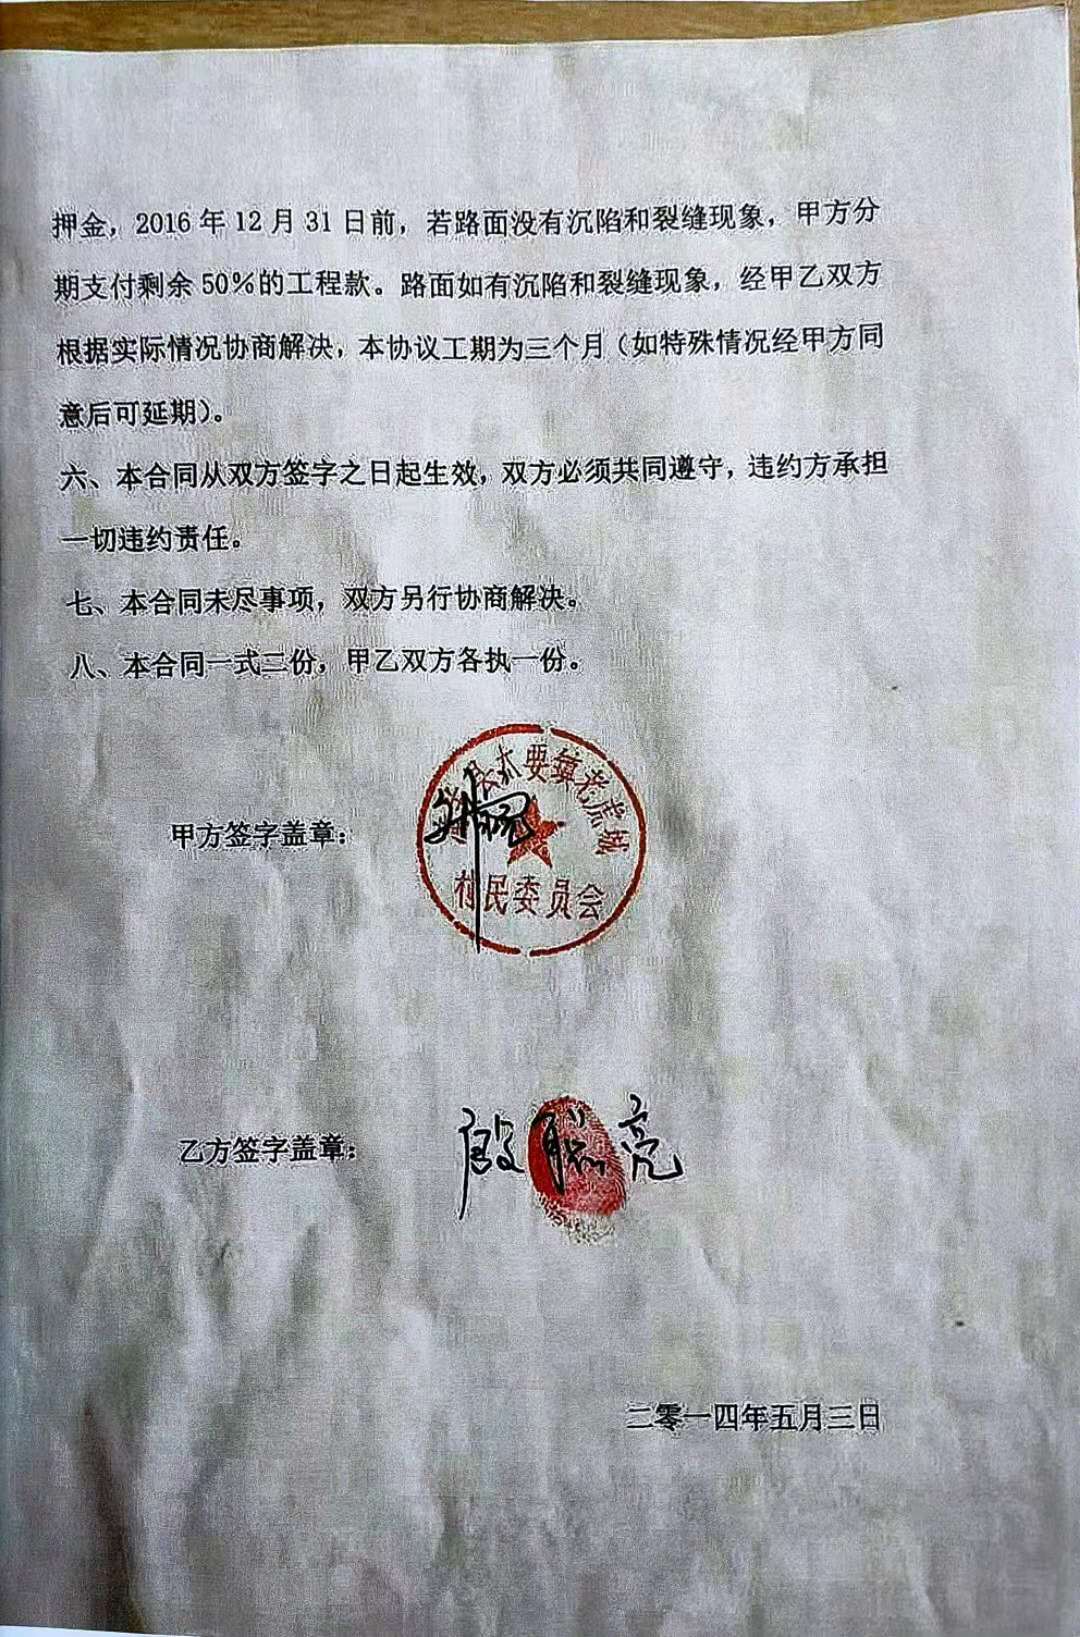 押金，2016年12月31日前，若路面没有沉陷和裂缝现象，甲方分
期支付剩余50%的工程款。路面如有沉陷和裂缝现象，经甲乙双方
根据实际情况协商解决，本协议工期为三个月（如特殊情况经甲方同
意后可延期）。
六、本合同从双方签字之日起生效，双方必须共同遵守，违约方承担
一切违约责任。
七、本合同未尽事项，双方另行协商解决。
八、本合同一式二份，甲乙双方各执一份。
县太要镇老虎城
甲方签字盖章：
村民委员会
乙方签字盖章：
亮
二零一四年五月三日